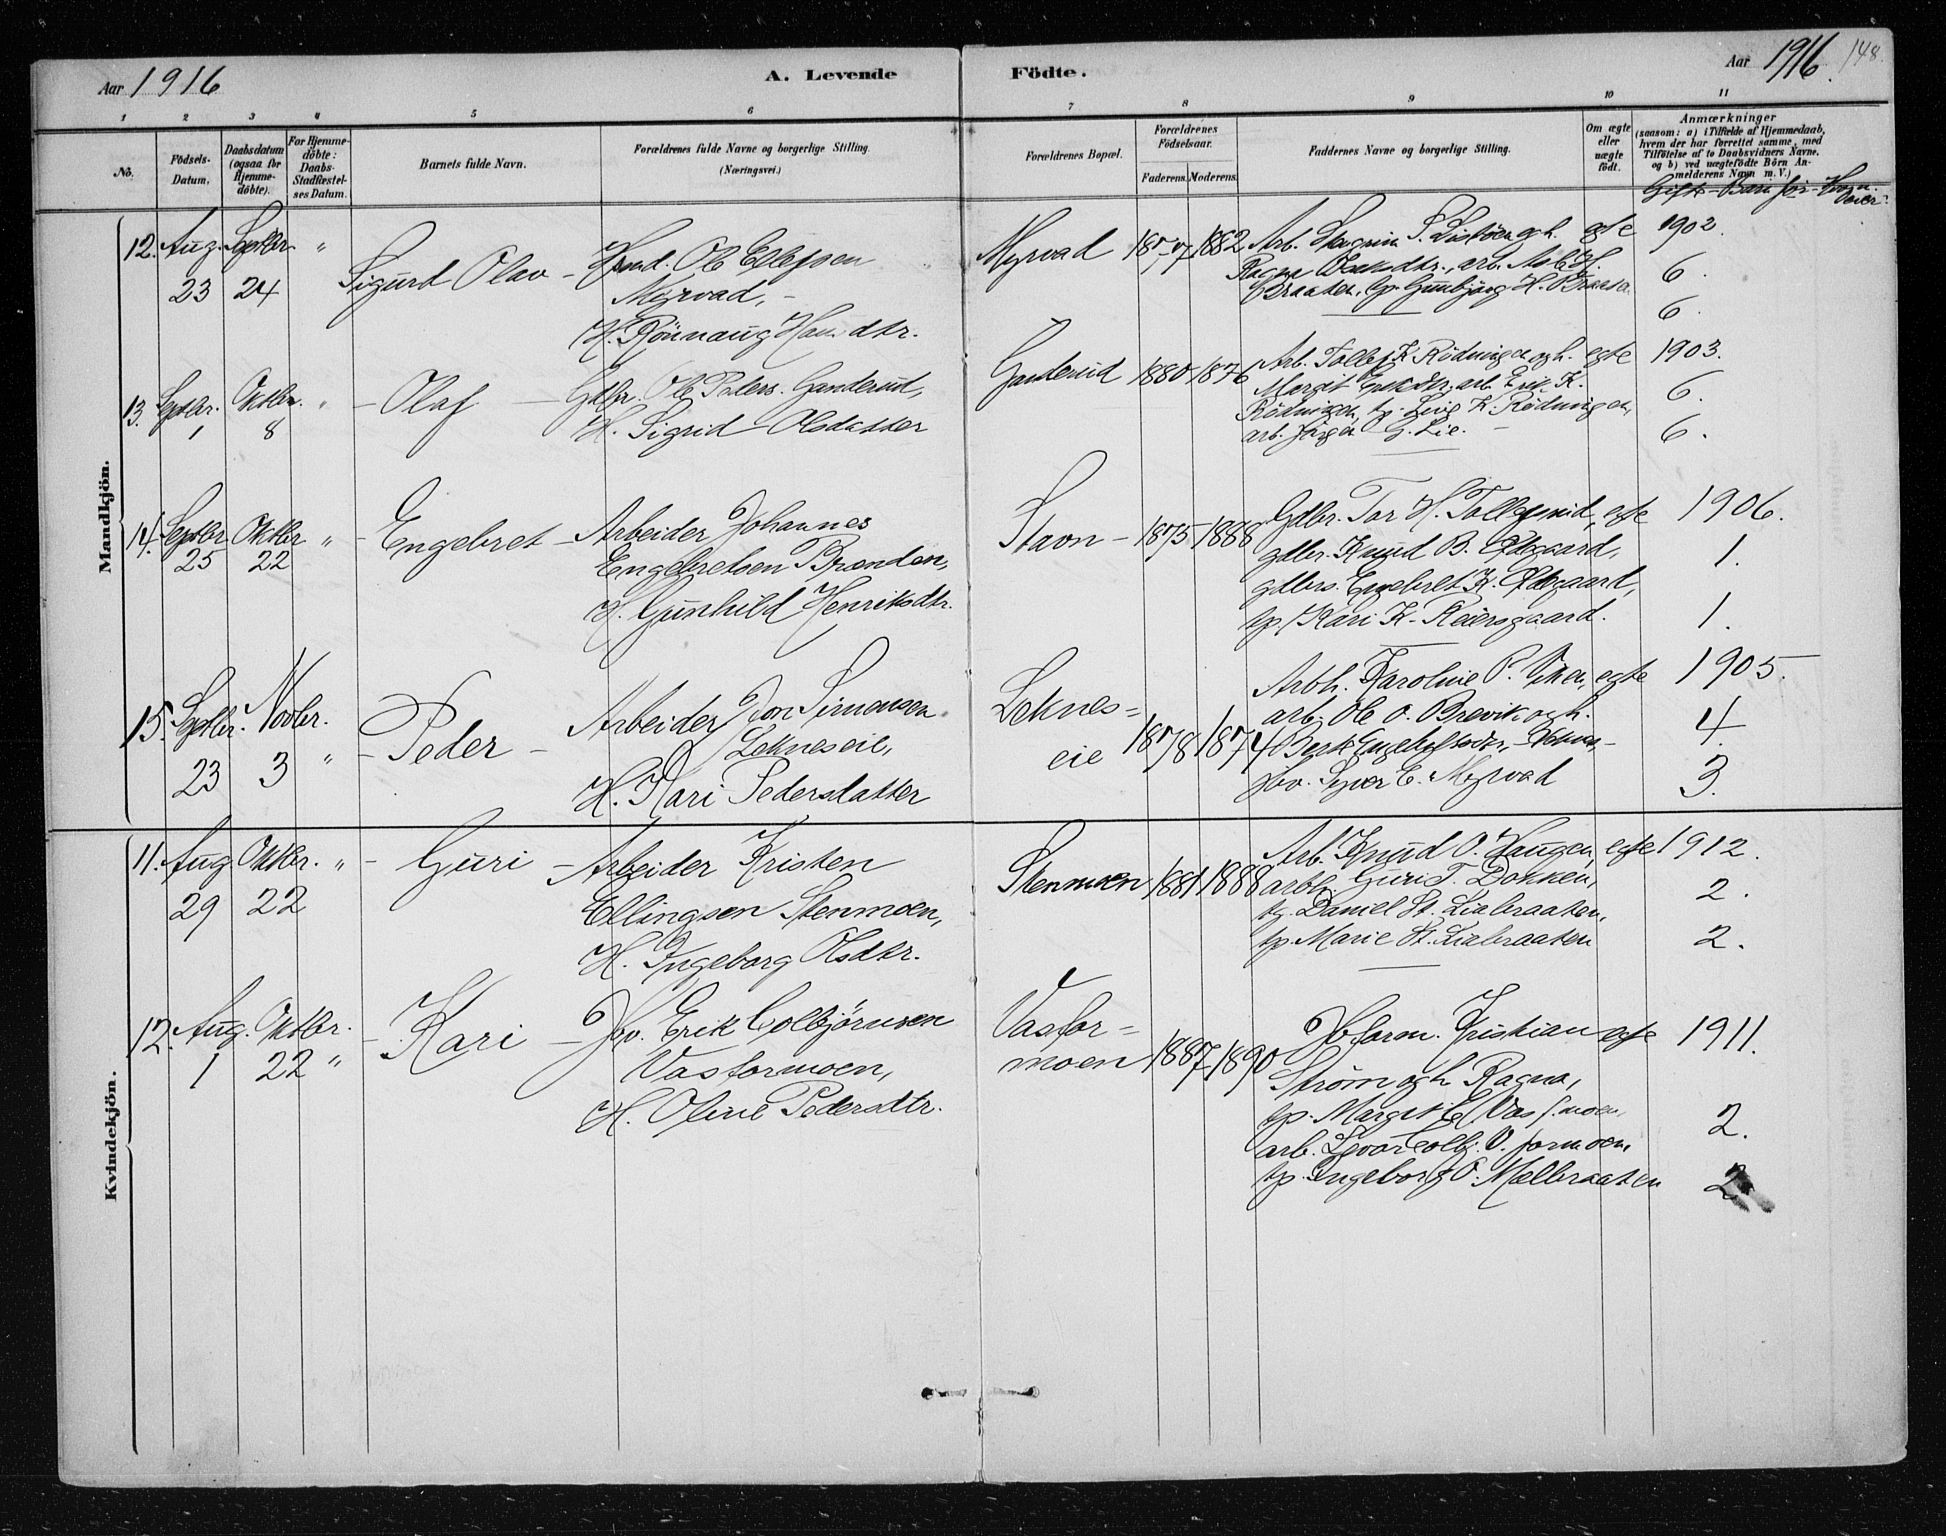 Aar 1916
A. Levende
Födte.
Aar 1916.
148.
1 2 3 4 5 6 7 8 9 10 11
No.
Födsels-
Datum.
Daabsdatum
(ogsaa for
Hjemme-
döbte).
For Hjemme-
döbte:
Daabs-
Stadfæstel-
ses Datum.
Barnets fulde Navn.
Forældrenes fulde Navne og borgerlige Stilling.
(Næringsvei.)
Forældrenes Bopæl.
Forældrenes
Födselsaar.
Faderens. Moderens.
Faddernes Navne og borgerlige Stilling.
Om ægte
eller
uægte
födt.
Anmærkninger
(saasom: a) i Tilfælde af Hjemmedaab,
hvem der har forrettet samme, med
Tilföielse af to Daabsvidners Navne.
og b) ved uægtefödte Börn An-
melderens Navn m. V.)
Gifte - Barn
Mandkjön.
12. Aug. Septbr. "
23 24
Sigurd Olav -
Ole Ellefsen
Myrvad, -
H. Rönnaug
Myrvad
1877 1882
Arb.
Ragna
Braaten, tp. Gunbjörg H. Braata
egte
1902.
6.
6.
13. Septbr. Oktbr. "
1 8
- Olaf -
Gdbr. Ole Peders. Ganderud,
H. Sigrid Olsdatter
Ganderud
1880 1876
Arb. Tollef K. Rödningen og h.
Margit arb. Erik K.
Rödningen, tp. Liv K. Rödningen,
arb. Jörgen G. Lie. -
egte
1903.
6.
6.
14. Septbr Oktbr "
25 22
- Engebret -
Arbeider Johannes
Engebretsen Brenden,
H. Gunhild Henriksdtr.
Stavn -
1875 1888
Gdbr. Tor H.
gdbr. Knud B.
gdbrs. Engebret K.
tp. Kari K. Reiersgaard.
egte
1906.
1.
1.
15. Septbr. Novbr.
23 3 "
- Peder -
Arbeider Jon Simensen
Lekneseie,
H. Kari Pedersdatter
Leknes=
eie
1878 1874
Arbh. Karoline P. Viken,
arb. Ole O. Brevik og h.
Berit
E. Myrvad
egte
1905.
4.
3.
Kvindekjön.
11. Aug. Oktbr. "
29 22
- Guri -
Arbeider Kristen
Ellingsen Stenmoen,
H. Ingeborg Olsdtr.
Stenmoen
1881 1888
Arb. Knud O. Haugen,
arbh. Guri T. Dokken,
tg. Daniel St. Liabraaten,
tp. Marie St. Liabraaten
egte
1912.
2.
2.
12. Aug. Oktbr.
1 22 "
- Kari -
Jbv. Erik Colbjörnsen
Vasformoen,
H. Oline Pedersdtr.
Vasfor=
moen
1887 1890
Kristian
Ström og h. Ragna,
tp. Margit
arb. Colbj. V. formoen,
tp. Ingeborg O. Mælbraaten
egte
1911.
2.
2